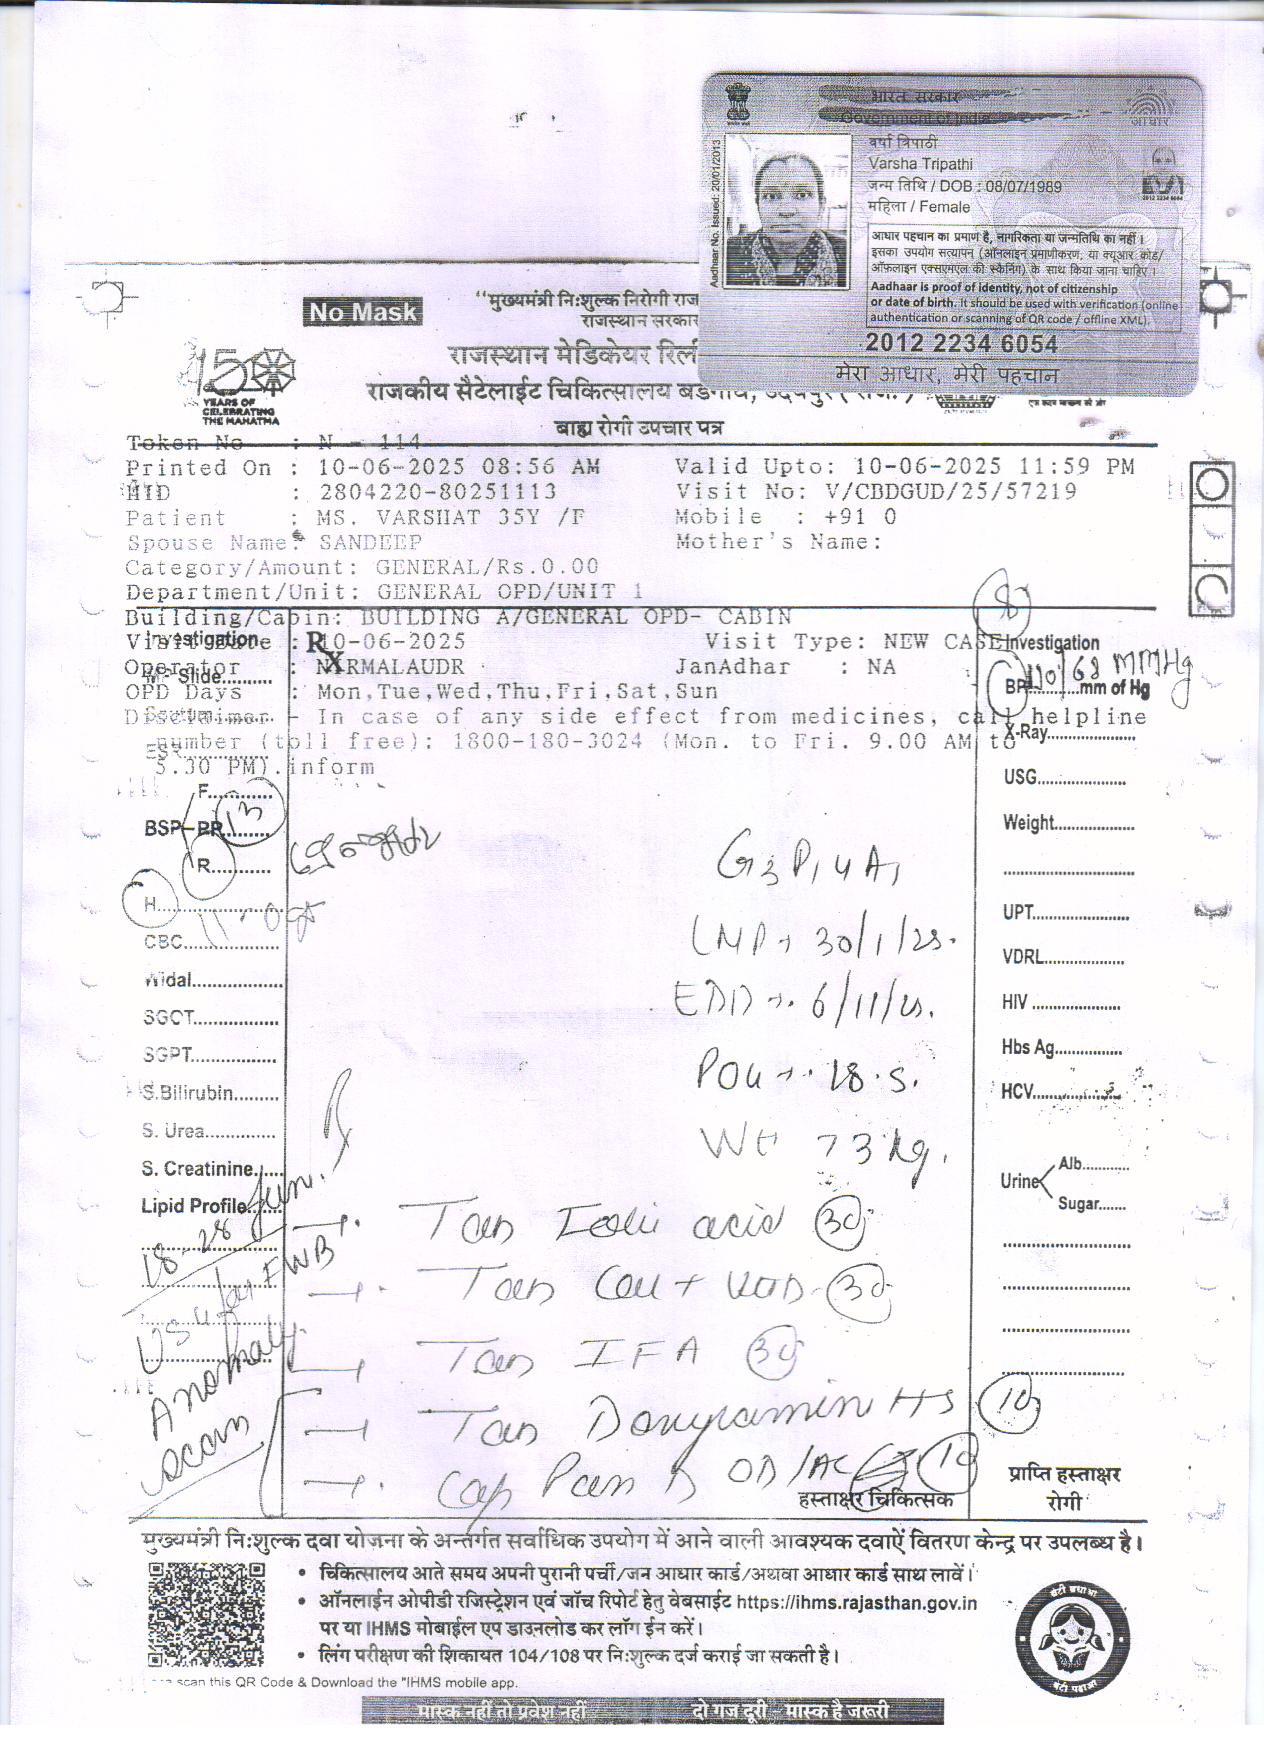 भारत सरकार
Government of India
आधार
वर्षा त्रिपाठी
Varsha Tripathi
जन्म तिथि / DOB : 08/07/1989
महिला / Female
Aadhaar No. Issued: 20/01/2013
2012 2234 6054
आधार पहचान का प्रमाण है, नागरिकता या जन्मतिथि का नहीं ।
इसका उपयोग सत्यापन (ऑनलाइन प्रमाणीकरण, या क्यूआर कोड/
ऑफ़लाइन एक्सएमएल की स्कैनिंग) के साथ किया जाना चाहिए ।
Aadhaar is proof of identity, not of citizenship
or date of birth. It should be used with verification (online
authentication or scanning of QR code / offline XML).
2012 2234 6054
मेरा आधार, मेरी पहचान
No Mask
"मुख्यमंत्री निःशुल्क निरोगी राज
राजस्थान सरकार
राजस्थान मेडिकेयर रिली
राजकीय सैटेलाईट चिकित्सालय बडगांव, उदयपुर (राज.)
YEARS OF
CELEBRATING
THE MAHATMA
बाह्य रोगी उपचार पत्र
Token No : N - 114
Printed On : 10-06-2025 08:56 AM Valid Upto: 10-06-2025 11:59 PM
HID : 2804220-80251113 Visit No: V/CBDGUD/25/57219
Patient : MS. VARSHAT 35Y /F Mobile : +91 0
Spouse Name: SANDEEP Mother's Name:
Category/Amount: GENERAL/Rs.0.00
Department/Unit: GENERAL OPD/UNIT 1
Building/Cabin: BUILDING A/GENERAL OPD- CABIN
Visit Date : 10-06-2025 Visit Type: NEW CASE
Operator : NIRMALAUDR JanAdhar : NA
OPD Days : Mon,Tue,Wed,Thu,Fri,Sat,Sun
Disclaimer - In case of any side effect from medicines, call helpline
number (toll free): 1800-180-3024 (Mon. to Fri. 9.00 AM to
5.30 PM).inform
Investigation
Rx
MP Slide..........
Sputum
ESR
BSP F............
PP..........
13
R...........
H
CBC..................
Widal.................
SGCT.................
SGPT................
S.Bilirubin.........
S. Urea..............
S. Creatinine......
Lipid Profile.......
18-28 Jun.
USG for FWB
Anomaly
scan
8
Investigation
BP 110/68 MMHg mm of Hg
X-Ray....................
USG....................
Weight..................
UPT......................
VDRL....................
HIV ....................
Hbs Ag...............
HCV
Urine
Alb...........
Sugar.......
LMP → 30/1/25.
EDD → 6/11/25.
POG → 18.5.
Wt 73 kg.
Rx
→ Tab Folic acid 30
→ Tab Cal + VitD 30
→ Tab IFA 30
→ Tab Doxylamin HS 10
→ Cap Pan D OD/AC 10
हस्ताक्षर चिकित्सक
प्राप्ति हस्ताक्षर
रोगी
मुख्यमंत्री निःशुल्क दवा योजना के अन्तर्गत सर्वाधिक उपयोग में आने वाली आवश्यक दवाऐं वितरण केन्द्र पर उपलब्ध है।
• चिकित्सालय आते समय अपनी पुरानी पर्ची/जन आधार कार्ड/अथवा आधार कार्ड साथ लावें।
• ऑनलाईन ओपीडी रजिस्ट्रेशन एवं जॉच रिपोर्ट हेतु वेबसाईट https://ihms.rajasthan.gov.in
पर या IHMS मोबाईल एप डाउनलोड कर लॉग ईन करें।
• लिंग परीक्षण की शिकायत 104/108 पर निःशुल्क दर्ज कराई जा सकती है।
scan this QR Code & Download the "IHMS mobile app.
बेटी बचाओ
बेटी पढ़ाओ
मास्क नहीं तो प्रवेश नहीं दो गज दूरी - मास्क है जरूरी